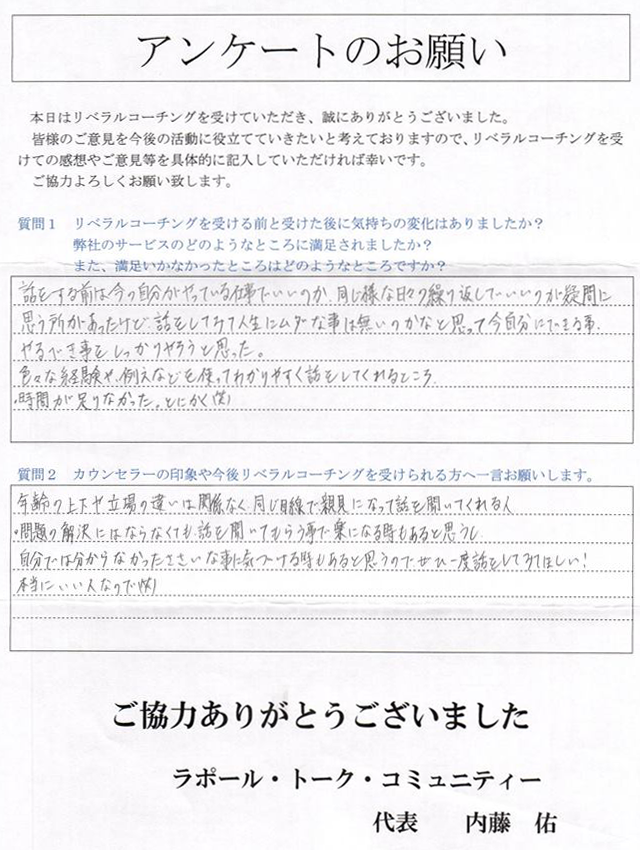 アンケートのお願い
本日はリベラルコーチングを受けていただき、誠にありがとうございました。
皆様のご意見を今後の活動に役立てていきたいと考えておりますので、リベラルコーチングを受
けての感想やご意見等を具体的に記入していただければ幸いです。
ご協力よろしくお願い致します。
質問1 リベラルコーチングを受ける前と受けた後に気持ちの変化はありましたか?
弊社のサービスのどのようなところに満足されましたか?
また、満足いかなかったところはどのようなところですか?
話をする前は今の自分がやっている仕事でいいのか、同じ様な日々の繰り返しでいいのか疑問に
思う所があったけど、話をしてみて人生にムダな事は無いのかなと思って今自分にできる事、
やるべき事をしっかりやろうと思った。
色々な経験や、例えなどを使ってわかりやすく話をしてくれるところ。
・時間が足りなかった。とにかく(笑)
質問2 カウンセラーの印象や今後リベラルコーチングを受けられる方へ一言お願いします。
年齢の上下や立場の違いは関係なく、同じ目線で親見になって話を聞いてくれる人
・問題の解決にはならなくても、話を聞いてもらう事で楽になる時もあると思うし、
自分では分からなかったささいな事に気づける時もあると思うのでぜひ一度話をしてみてほしい!
本当にいい人なので(笑)
ご協力ありがとうございました
ラポール・トーク・コミュニティー
代表 内藤 佑